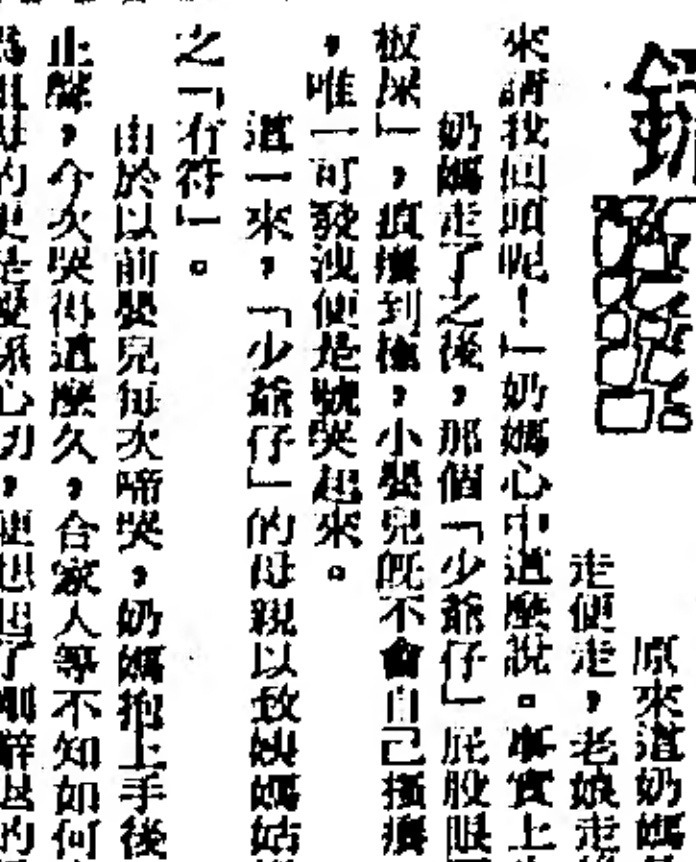 原來這奶媽
走便走，老娘走
來請我回頭呢！」奶媽心中這麼說。事實上
奶媽走了之後，那個「少爺仔」屁股眼
板屎」，痕癢到極，小嬰兒既不會自己搔癢
，唯一可發洩便是號哭起來。
這一來，「少爺仔」的母親以致姨媽姑
之「冇符」。
由於以前嬰兒每次啼哭，奶媽抱上手後
止聲，今次哭得這麼久，合家人等不知如何
的更是愛孫心切，便想起了剛辭退的